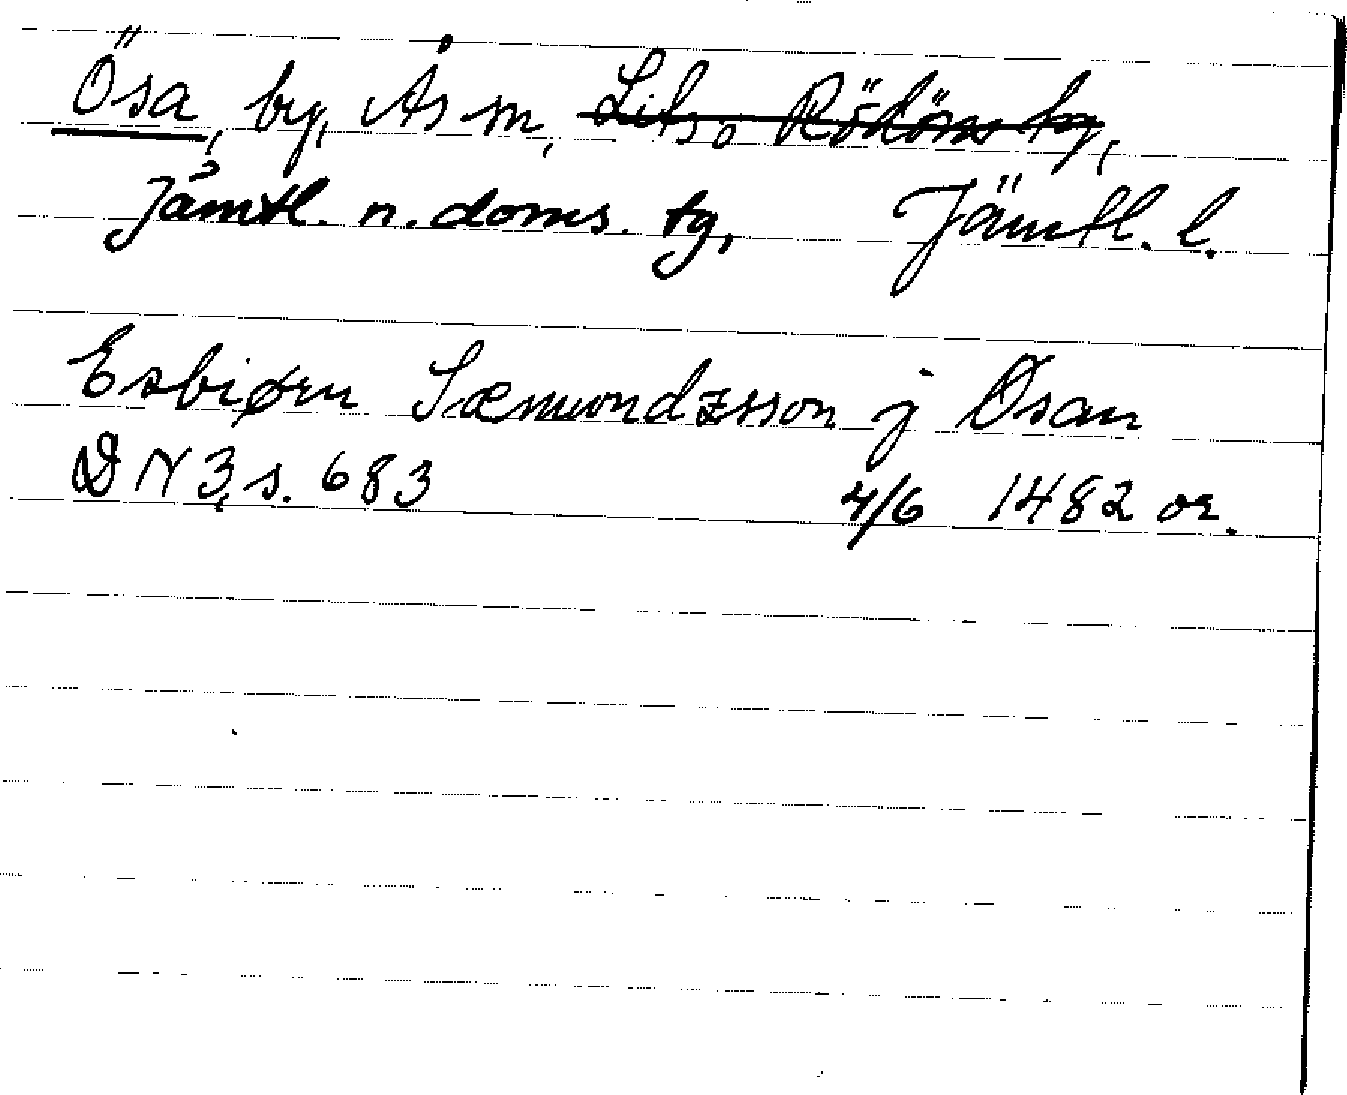 Ösa, by, Ås sn, Lits o Rödöns tg,
Jämtl. n. doms. tg, Jämtl. l.
Esbiørn Sæmundzsson j Øsan
DN 3, s. 683 4/6 1482 or.